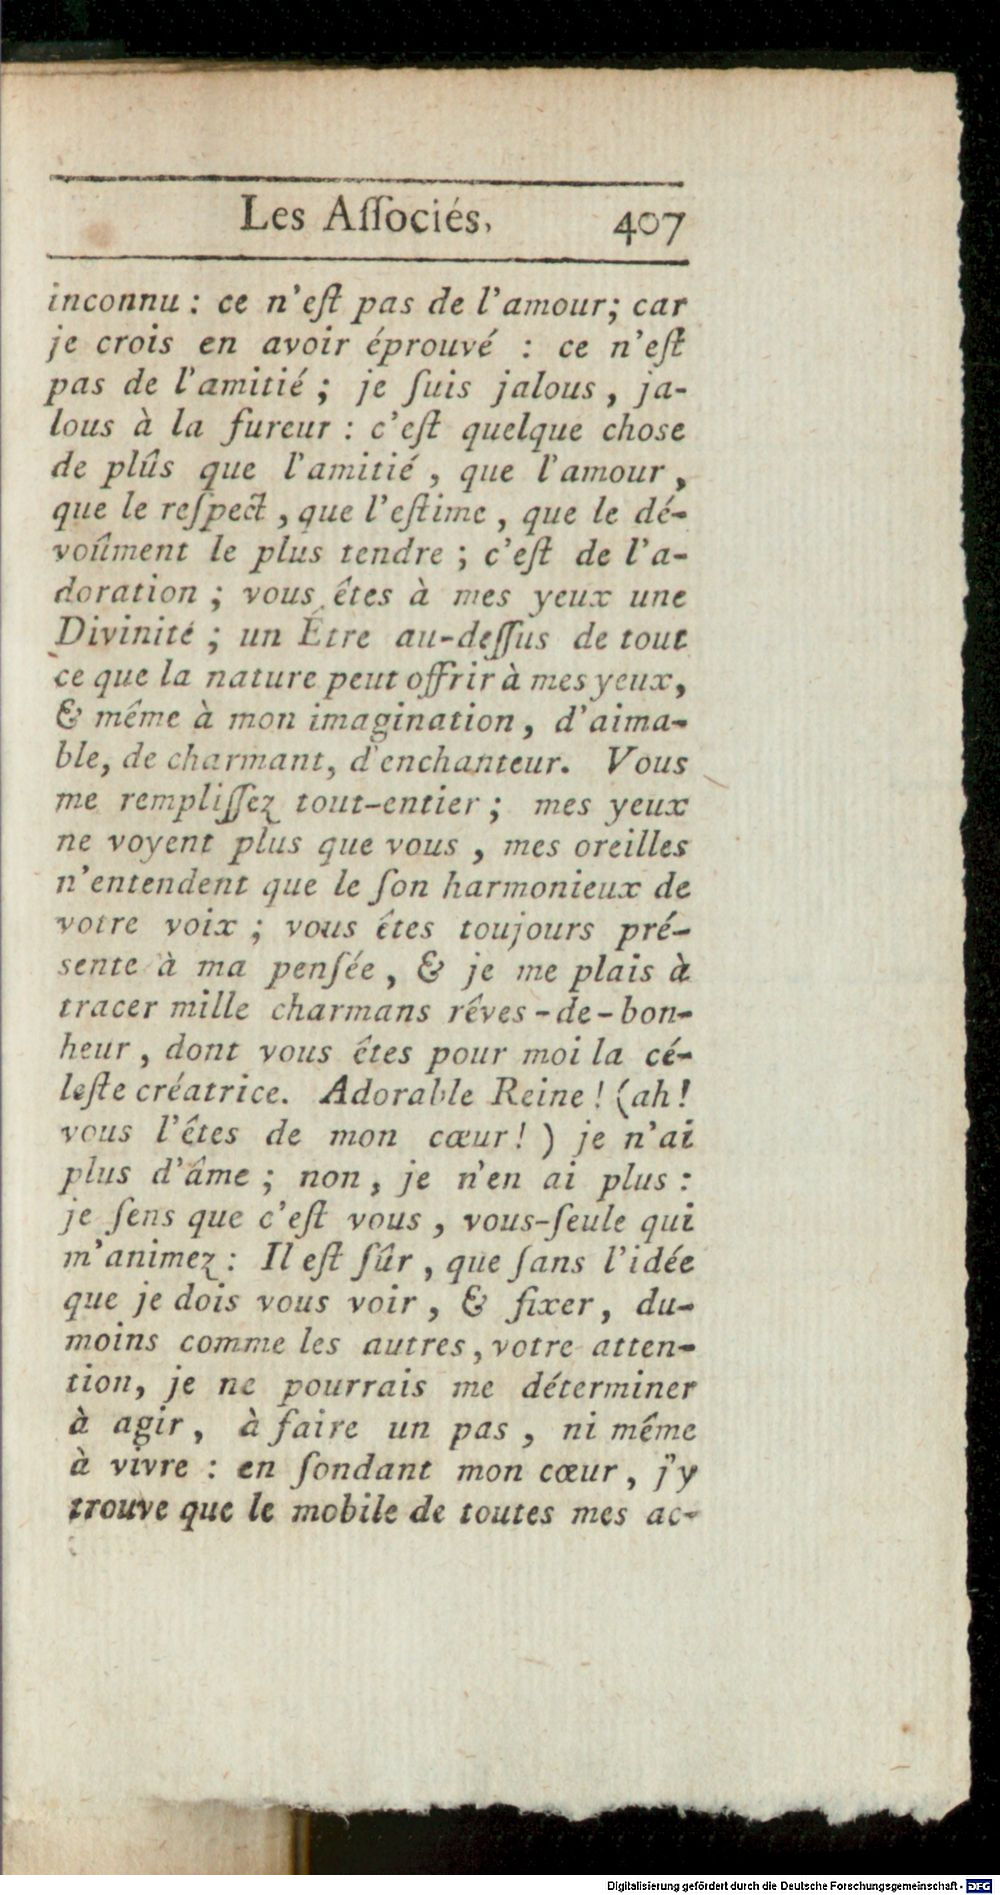 Les Aſſociés, 407
inconnu : ce n'eſt pas de l'amour; car
je crois en avoir éprouvé : ce n'eſt
pas de l'amitié ; je ſuis jalous , ja-
lous à la fureur : c'eſt quelque chose
de plûs que l'amitié , que l'amour ,
que le reſpect , que l'eſtime , que le dé-
voûment le plus tendre ; c'eſt de l'a-
doration ; vous êtes à mes yeux une
Divinité ; un Être au-deſſus de tout
ce que la nature peut offrir à mes yeux,
& même à mon imagination , d'aima-
ble, de charmant, d'enchanteur. Vous
me rempliſſez tout-entier ; mes yeux
ne voyent plus que vous , mes oreilles
n'entendent que le ſon harmonieux de
votre voix ; vous êtes toujours pré-
sente à ma penſée , & je me plais à
tracer mille charmans rêves-de-bon-
heur , dont vous êtes pour moi la cé-
leſte créatrice. Adorable Reine ! (ah !
vous l'êtes de mon cœur ! ) je n'ai
plus d'âme ; non , je n'en ai plus :
je ſens que c'eſt vous , vous-ſeule qui
m'animez : Il eſt ſûr , que ſans l'idée
que je dois vous voir , & fixer , du-
moins comme les autres , votre atten-
tion, je ne pourrais me déterminer
à agir , à faire un pas , ni même
à vivre : en ſondant mon cœur , j'y
trouve que le mobile de toutes mes ac-
Digitalisierung gefördert durch die Deutsche Forschungsgemeinschaft - DFG